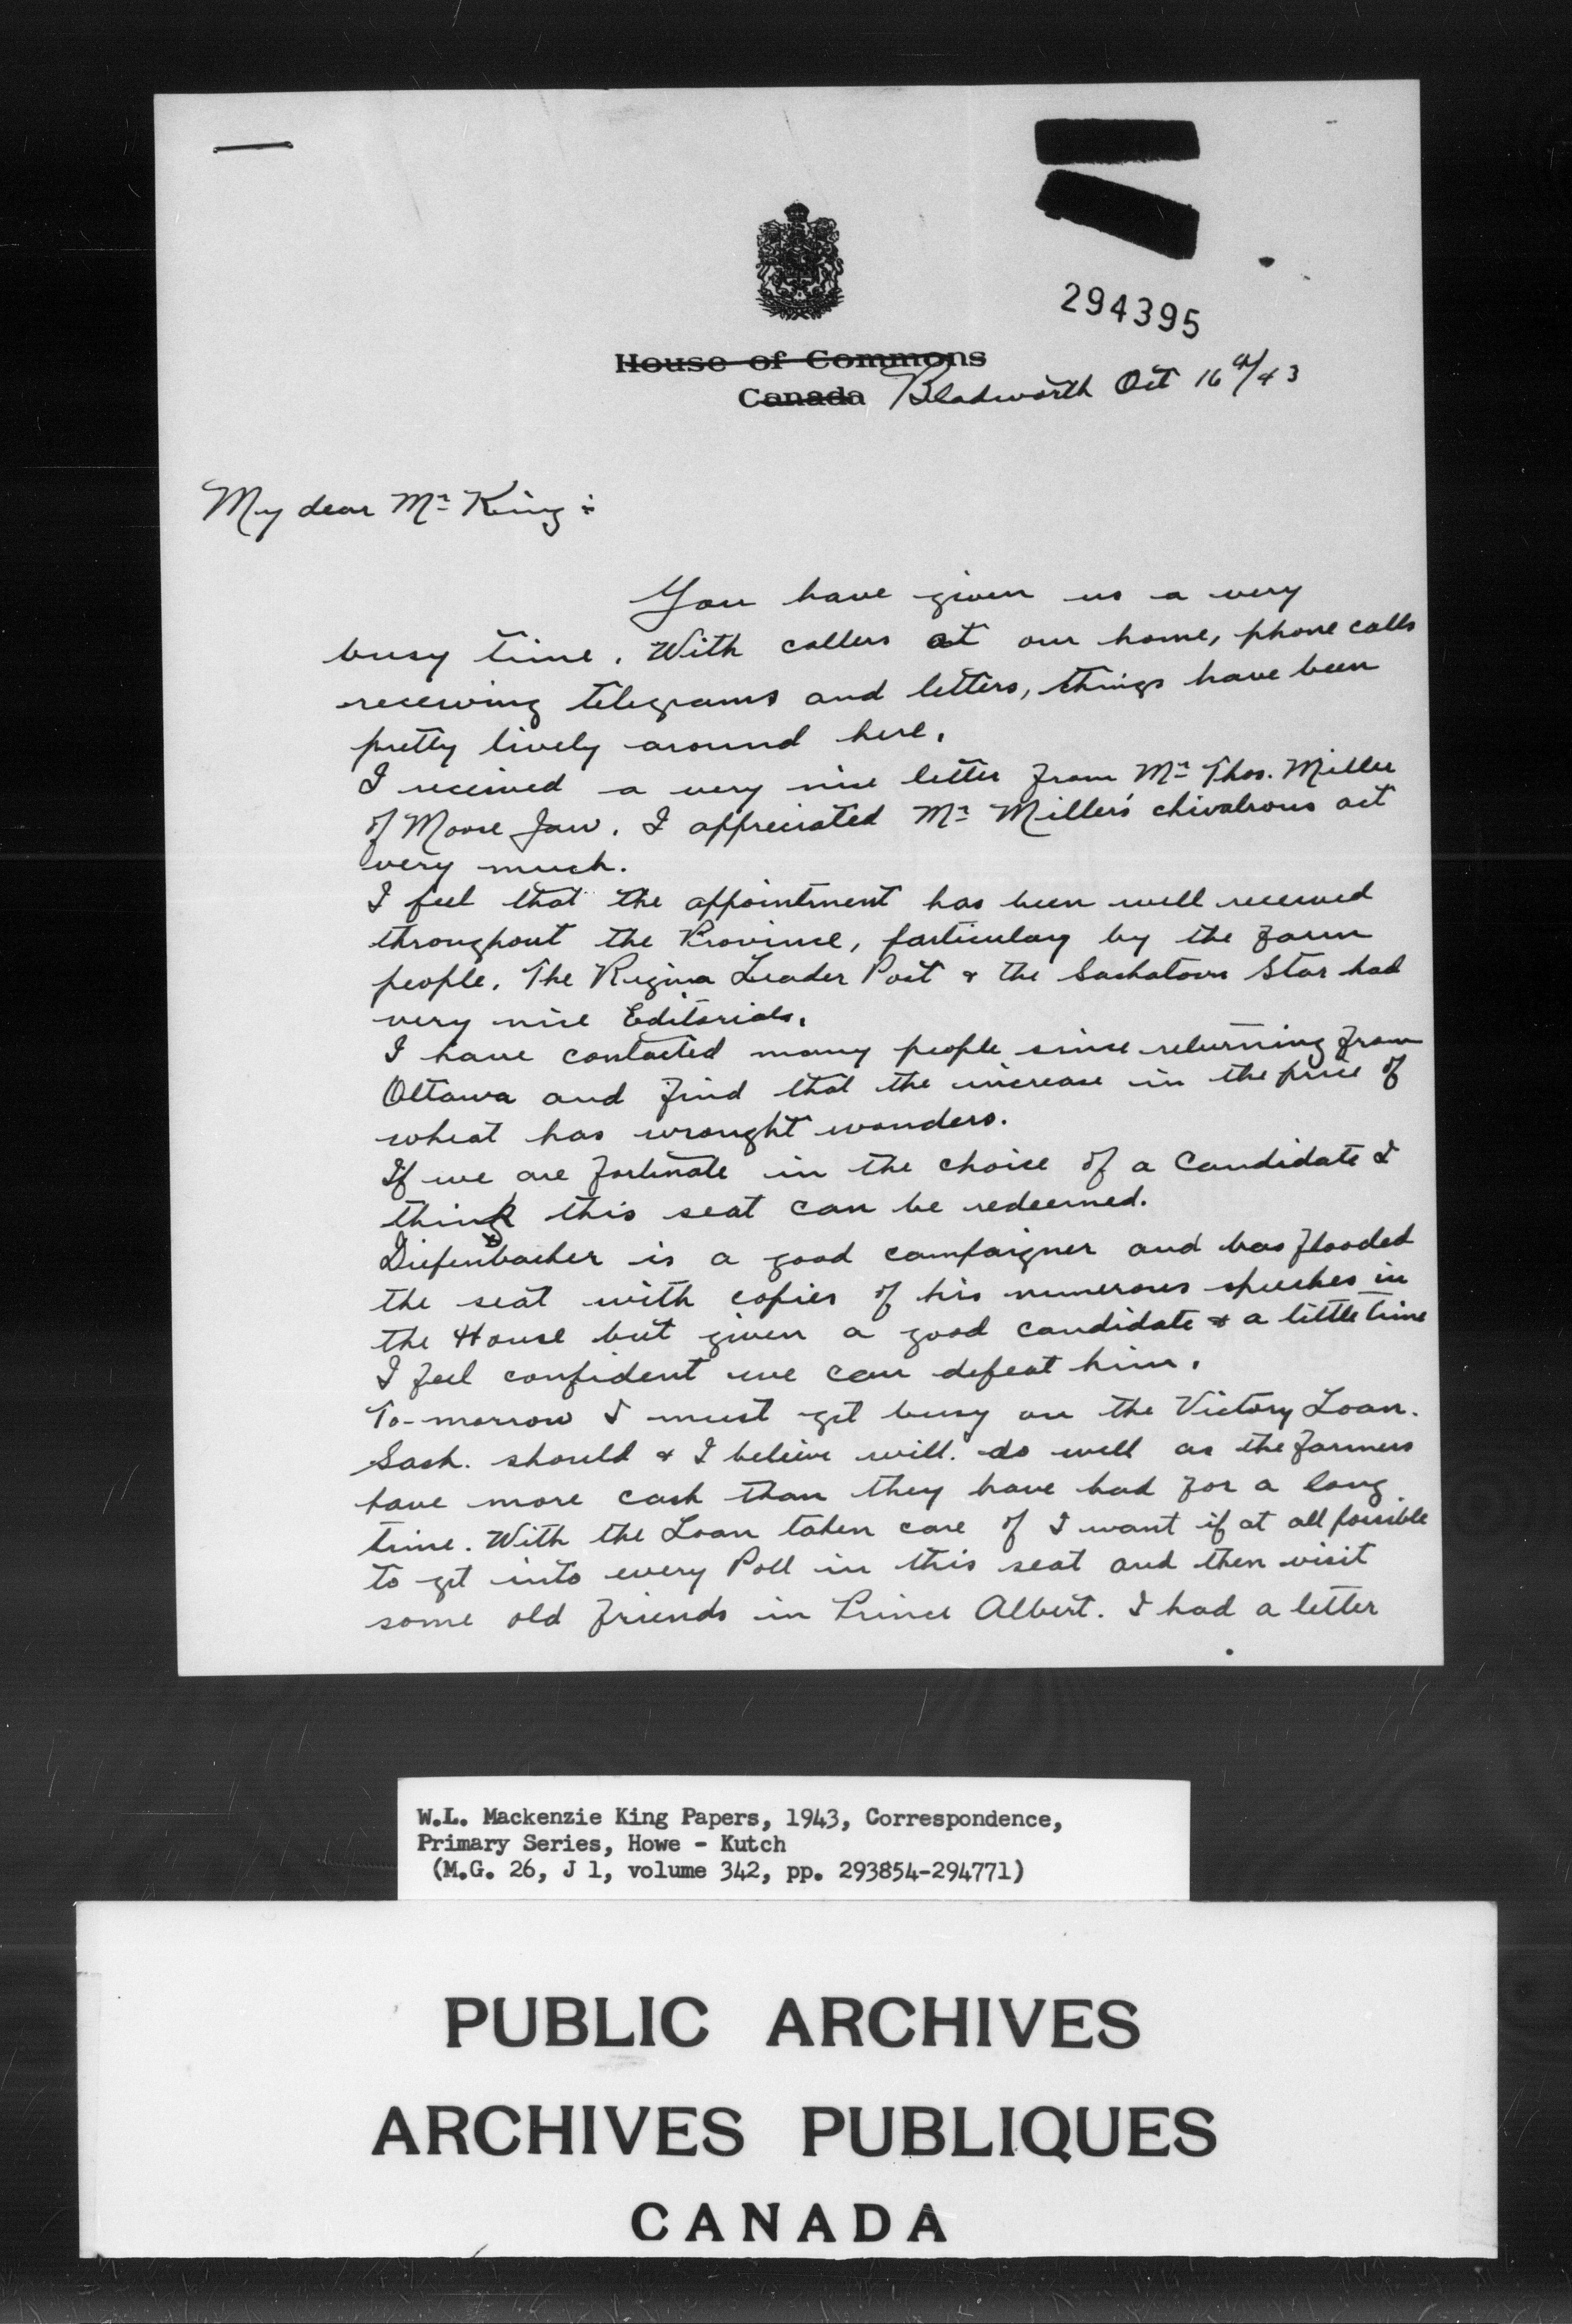 294395
House of Commons
Canada
Bladworth Oct 16th/43
My dear Mr King:
You have given us a very
busy time. With callers at our home, phone calls
receiving telegrams and letters, things have been
pretty lively around here.
I received a very nice letter from Mr Thos. Miller
of Moose Jaw. I appreciated Mr Miller's chivalrous act
very much.
I feel that the appointment has been well received
throughout the Province, particulary by the farm
people. The Regina Leader Post & the Saskatoon Star had
very nice Editorials.
I have contacted many people since returning from
Ottawa and find that the increase in the price of
wheat has wrought wonders.
If we are fortunate in the choice of a Candidate I
think this seat can be redeemed.
Diefenbacher is a good campaigner and has flooded
the seat with copies of his numerous speeches in
the House but given a good candidate & a little time
I feel confident we can defeat him.
To-morrow I must get busy on the Victory Loan.
Sask. should & I believe will do well as the farmers
have more cash than they have had for a long
time. With the Loan taken care of I want if at all possible
to get into every Poll in this seat and then visit
some old friends in Prince Albert. I had a letter
W.L. Mackenzie King Papers, 1943, Correspondence,
Primary Series, Howe - Kutch
(M.G. 26, J 1, volume 342, pp. 293854-294771)
PUBLIC ARCHIVES
ARCHIVES PUBLIQUES
CANADA